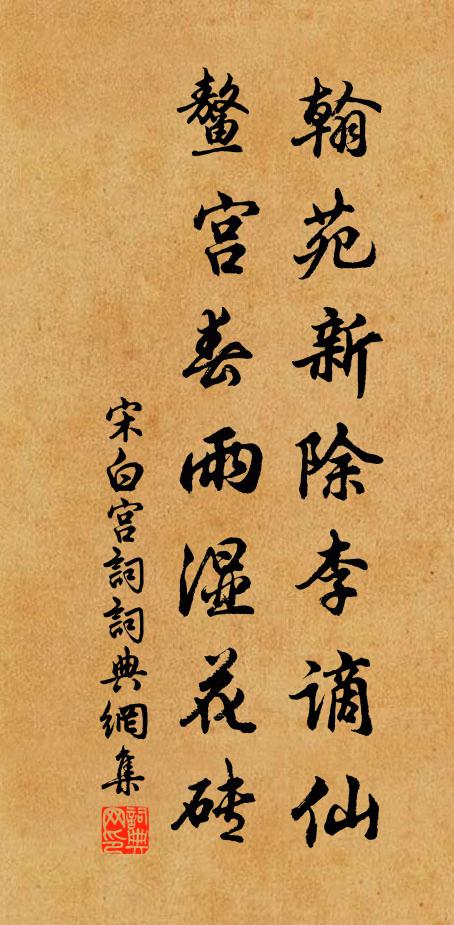 翰苑新除李谪仙
鳌宫春雨湿花砖
宋白宫詞詞典網集
詞典网印